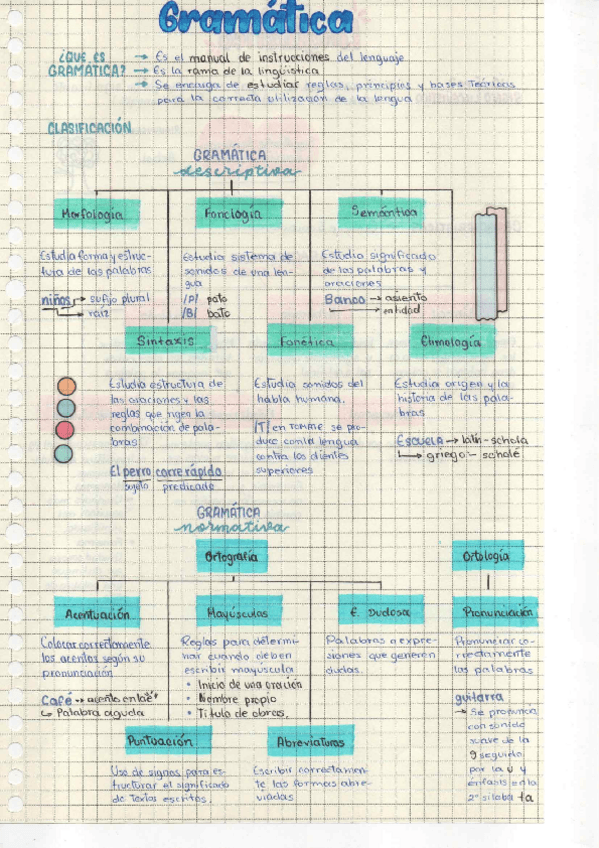 Gramática
¿QUÉ ES GRAMÁTICA?
→ Es el manual de instrucciones del lenguaje
→ Es la rama de la lingüística
→ Se encarga de estudiar reglas, principios y bases teóricas
para la correcta utilización de la lengua
CLASIFICACIÓN
GRAMÁTICA
descriptiva
Morfología
Estudia forma y estruc-
tura de las palabras
niños → sufijo plural
→ raíz
Fonología
Estudia sistema de
sonidos de una len-
gua
/P/ pato
/B/ bato
Semántica
Estudia significado
de las palabras y
oraciones
Banco → asiento
→ entidad
Sintaxis
Estudia estructura de
las oraciones y las
reglas que rigen la
combinación de pala-
bras
El perro corre rápido
sujeto predicado
Fonética
Estudia sonidos del
habla humana.
/T/ en TOMATE se pro-
duce con la lengua
contra los dientes
superiores
Etimología
Estudia origen y la
historia de las pala-
bras
ESCUELA → latín - schola
→ griego - scholé
GRAMÁTICA
normativa
Ortografía
Acentuación
Colocar correctamente
los acentos según su
pronunciación
Café → acento en la "é"
↪ Palabra aguda
Mayúsculas
Reglas para determi-
nar cuando deben
escribir mayúscula
• Inicio de una oración
• Nombre propio
• Título de obras.
E. Dudosa
Palabras o expre-
siones que generen
dudas.
Puntuación
Uso de signos para es-
tructurar el significado
de textos escritos.
Abreviaturas
Escribir correctamen-
te las formas abre-
viadas
Ortología
Pronunciación
Pronunciar co-
rrectamente
las palabras
guitarra
→ Se pronuncia
con sonido
suave de la
g seguido
por la u y
énfasis en la
2° sílaba ta